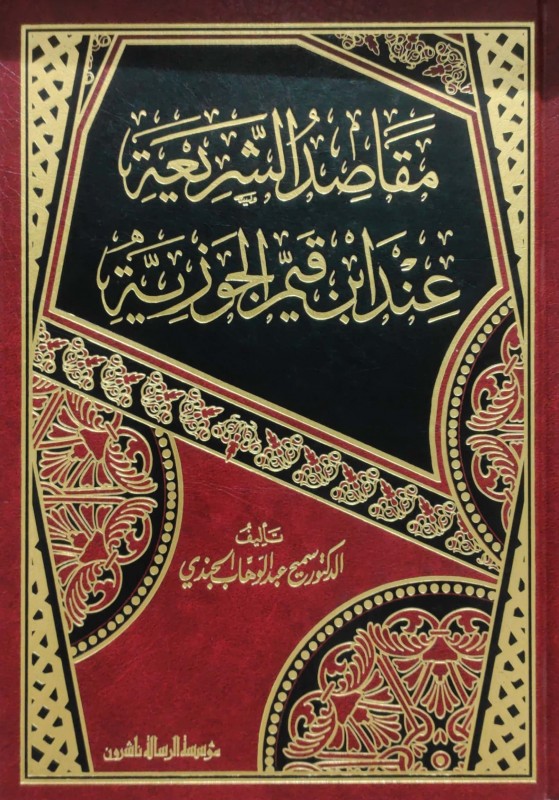 مَقَاصِدُ الشَّرِيْعَةِ
عِنْدَ ابْنِ قَيِّمِ الجَوْزِيَّةِ
تأليف
الدكتور سميح عبد الوهاب الجندي
مؤسسة الرسالة ناشرون